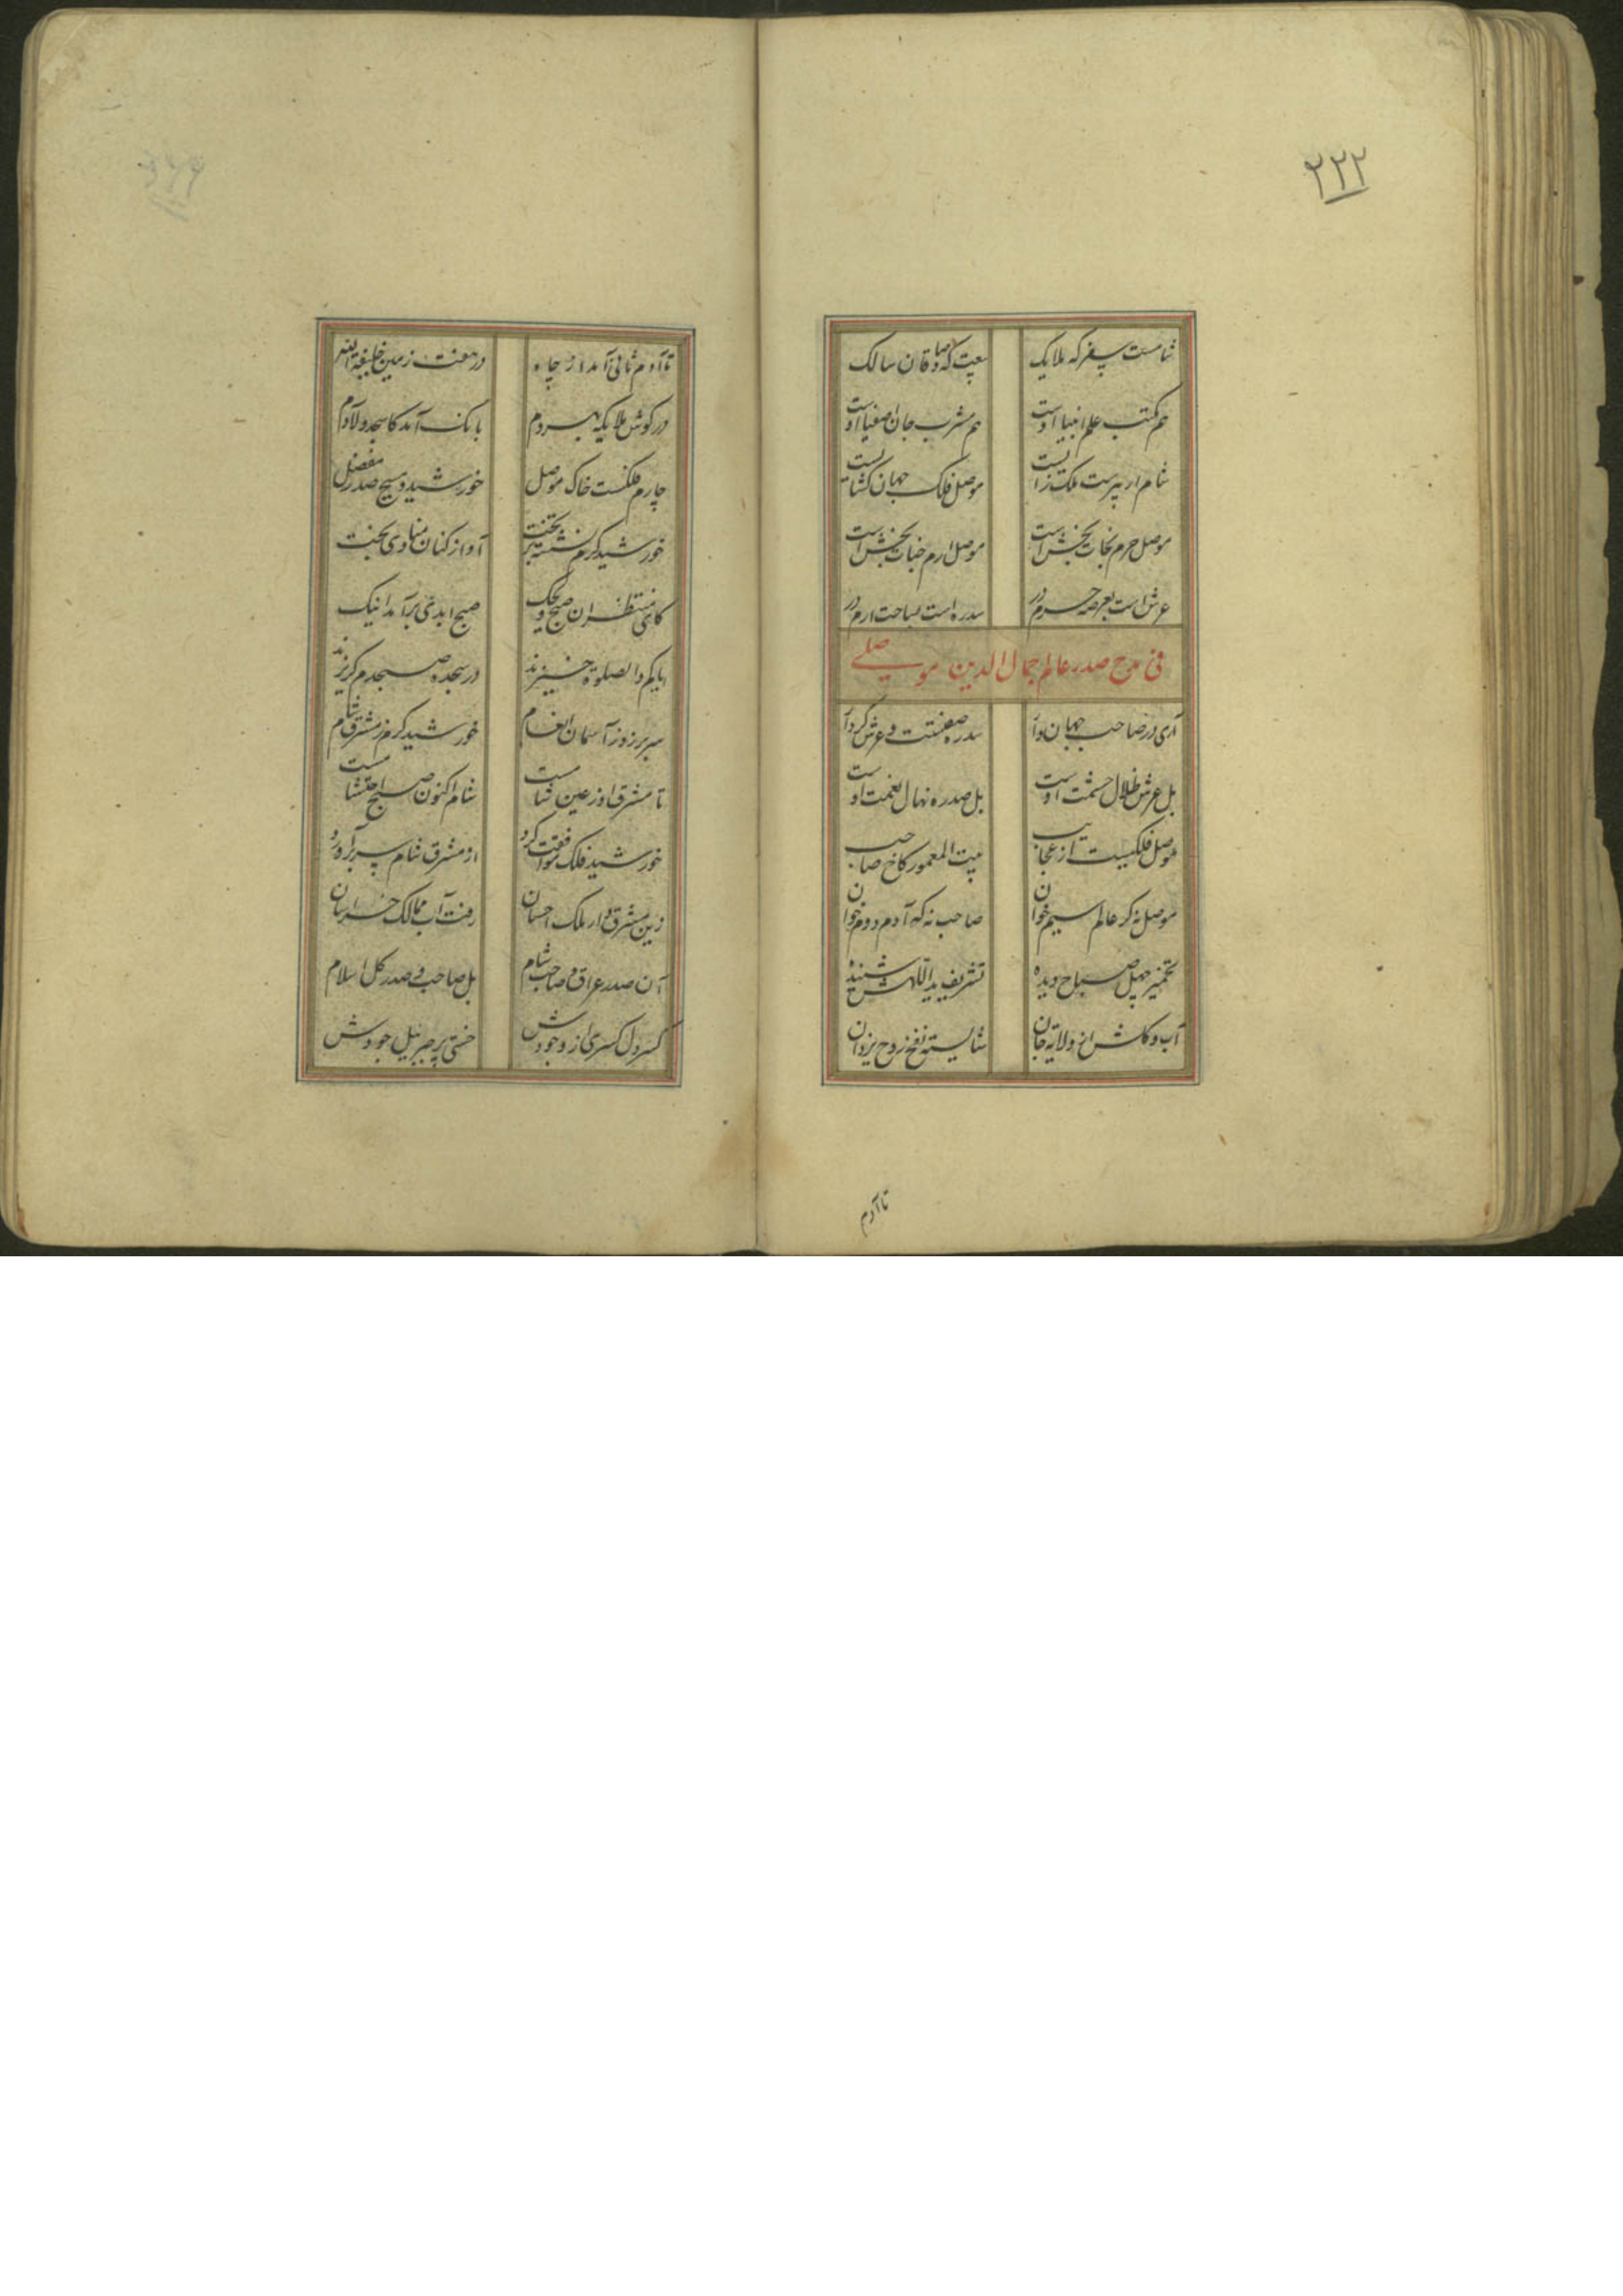 ۲۲۲
شامست سفر که ملایک
سعیت که صادقان سالک
هم مکتب علم انبیا اوست
هم مشرب جان اصفیا اوست
شام ار پیرست ملک زایست
موصل فلک جهان گشایست
موصل حرم نجات بخش است
موصل ارم جنات بخش است
عرش است بعرصه حرم در
سدره است بساحت ارم در
فی مدح صدر عالم جمال الدین موصلی
آری در صاحب جهان دار
سدره صفتست و عرش کردار
بل عرش ظلال حشمت اوست
بل صدره نهال نعمت اوست
موصل فلکیست از عجایب
بیت المعمور کاخ صاحب
موصل نه که عالم سیم خوان
صاحب نه که آدم دوم خوان
تخمیر چهل صباح دیده
تشریف ید اللهش شنیده
آب و گلش از ولایة جان
شایسته نفخ روح یزدان
تا آدم
تا آدم ثانی آمد از جاه
در هفت زمین خلیفة الله
در گوش ملایکه بهر دم
بانک آمد کاسجدوا لادم
چارم فلکست خاک موصل
خورشید و مسیح صدر مفضل
خورشید کرم نشسته بر تخت
آواز کنان منادی بخت
کای منتظران صبح ویحک
صبح ابدی برآمد اینک
آیا کم والصلوة خیزند
در سجده صبحدم گریزند
سر برزد ز آسمان انعام
خورشید کرم ز مشرق شام
تا مشرق او ز عین شامست
شام اکنون صبح احتشامست
خورشید فلک موافقت کرد
از مشرق شام سر برآورد
زین مشرق دار ملک احسان
رفت آب ممالک خراسان
آن صدر عراق و صاحب شام
بل صاحب و صدر کل اسلام
کسر دل کسری از وجودش
خشتی پر جبرئیل جودش